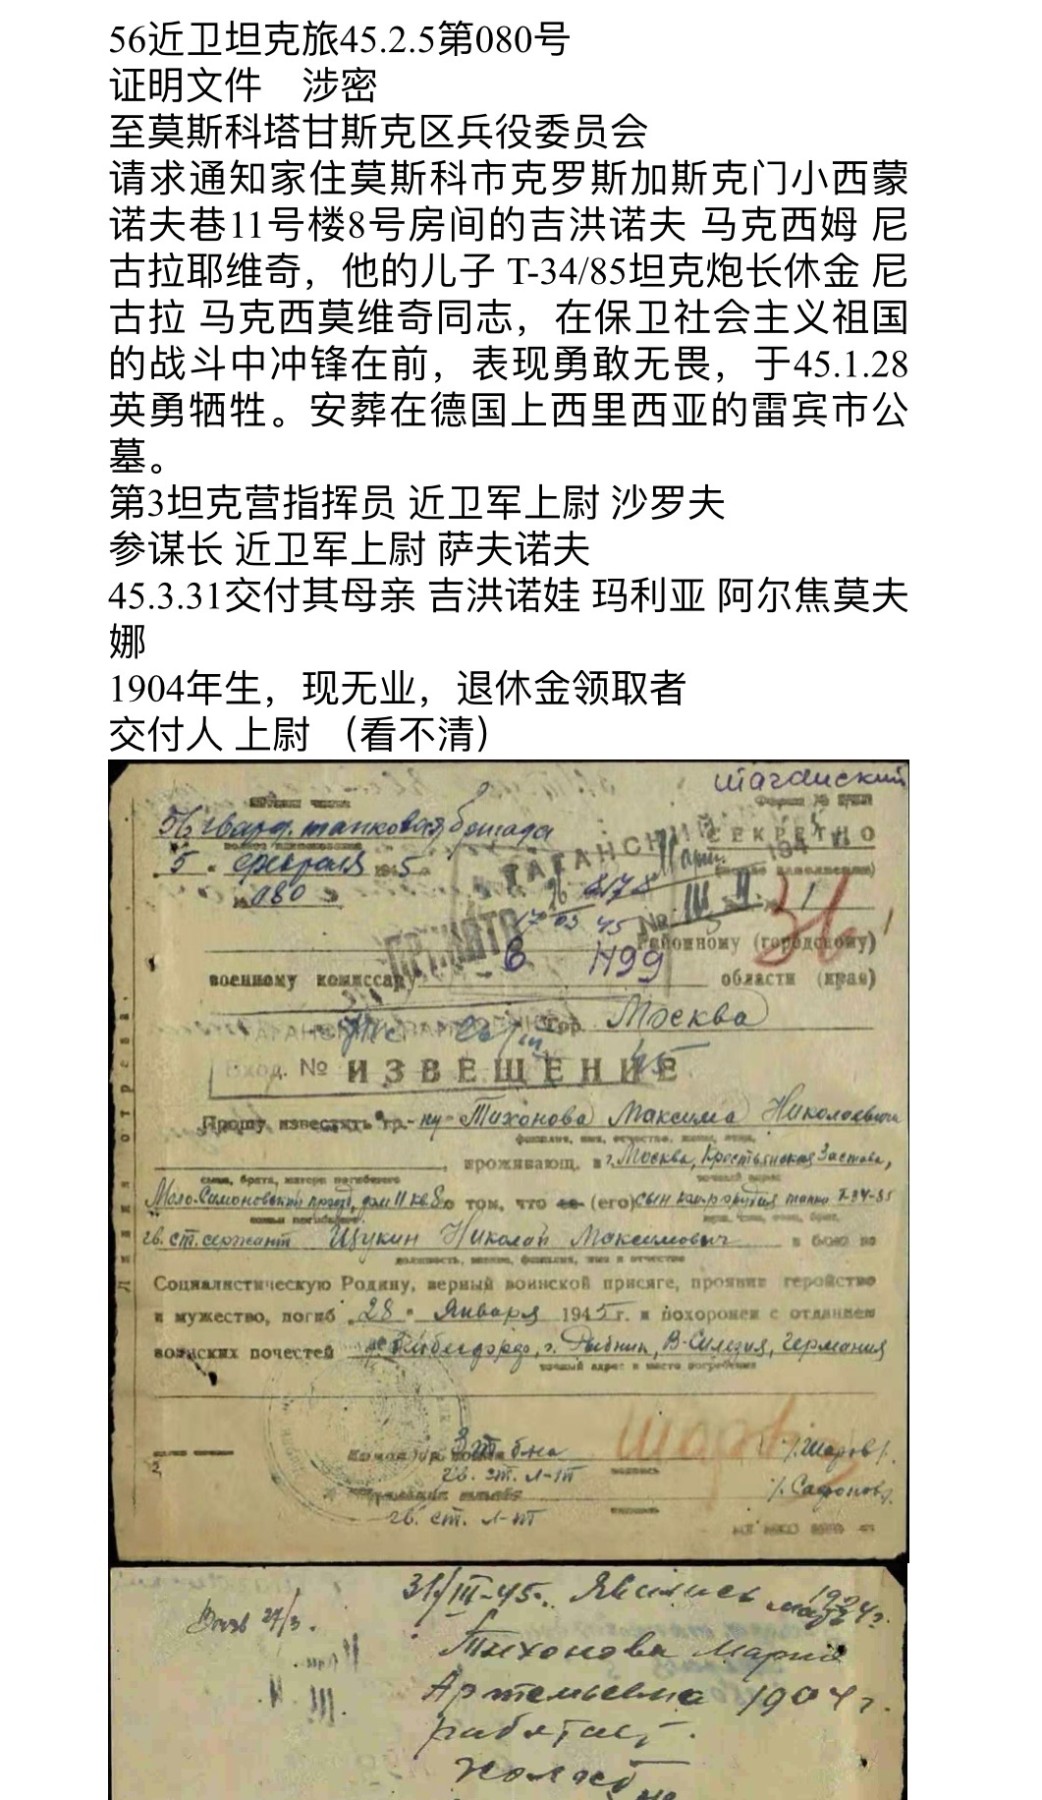 56近卫坦克旅45.2.5第080号
证明文件　涉密
至莫斯科塔甘斯克区兵役委员会
请求通知家住莫斯科市克罗斯加斯克门小西蒙
诺夫巷11号楼8号房间的吉洪诺夫 马克西姆 尼
古拉耶维奇，他的儿子 T-34/85坦克炮长休金 尼
古拉 马克西莫维奇同志，在保卫社会主义祖国
的战斗中冲锋在前，表现勇敢无畏，于45.1.28
英勇牺牲。安葬在德国上西里西亚的雷宾市公
墓。
第3坦克营指挥员 近卫军上尉 沙罗夫
参谋长 近卫军上尉 萨夫诺夫
45.3.31交付其母亲 吉洪诺娃 玛利亚 阿尔焦莫夫
娜
1904年生，现无业，退休金领取者
交付人 上尉 （看不清）
56 гвард. танковая бригада
СЕКРЕТНО
5 февраля 1945
080
8178
17 03 45 №
Районному (городскому)
военному комиссару
области (края)
гор. Москва
Вход. № ИЗВЕЩЕНИЕ
Прошу известить гр-ну Тихонова Максима Николаевича
фамилия, имя, отчество
проживающ. в г. Москва, Крестьянская Застава,
сына, брата, матери погибшего
точный адрес
дом 11 кв 8 о том, что ее (его) сын
гв. ст. сержант Щукин Николай Максимович в бою за
должность, звание, фамилия, имя и отчество
Социалистическую Родину, верный воинской присяге, проявив геройство
и мужество, погиб 28 Января 1945 г. и похоронен с отданием
воинских почестей г. Рыбник, В-Силезия, Германия
точный адрес и место погребения
3 тб-на
гв. ст. л-нт
/Шаров/.
/Сафонов/.
гв. ст. л-нт
31/III-45. Явилась
Тихонова Мария
Артемьевна 1904 г.